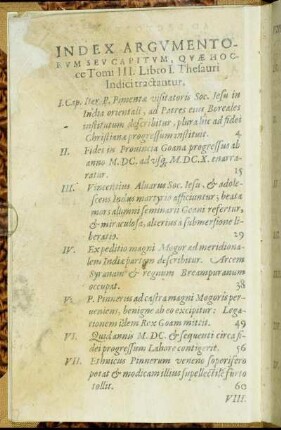 INDEX ARGVMENTO-
RVM SEV CAPITVM, QVÆ HOC-
ce Tomi III. Libro I. Thesauri
Indici tractantur.
I. Cap. Iter P. Pementæ visitatoris Soc. Iesu in
India orientali, ad Patres eius Boreales
institutum describitur, pluraque ad fidei
Christianæ progressum instituit. 4
II. Fides in Prouincia Goana progressus ab
anno M.DC. ad vsq; M.DC.X. enarra-
ratur. 15
III. Vincentius Aluarus Soc. Iesu, & adole-
scens Indus martyrio afficiuntur; beata
mors alumni seminarii Goani refertur,
& miraculosa, alterius a submersione li-
beratio. 29
IV. Expeditio magni Mogor ad meridiona-
lem Indiæ partem describitur. Arcem
Syranam & regnum Breampuranum
occupat. 38
V. P. Pinnerus ad castra magni Mogoris per-
ueniens, benigne ab eo excipitur: Lega-
tionem idem Rex Goam mittit. 49
VI. Quid anno M.DC. & sequenti circa fi-
dei progressum Lahore contigerit. 56
VII. Ethnicus Pinnerum veneno soporifero
potat & modicam illius supellectilē furto
tollit. 60
VIII.